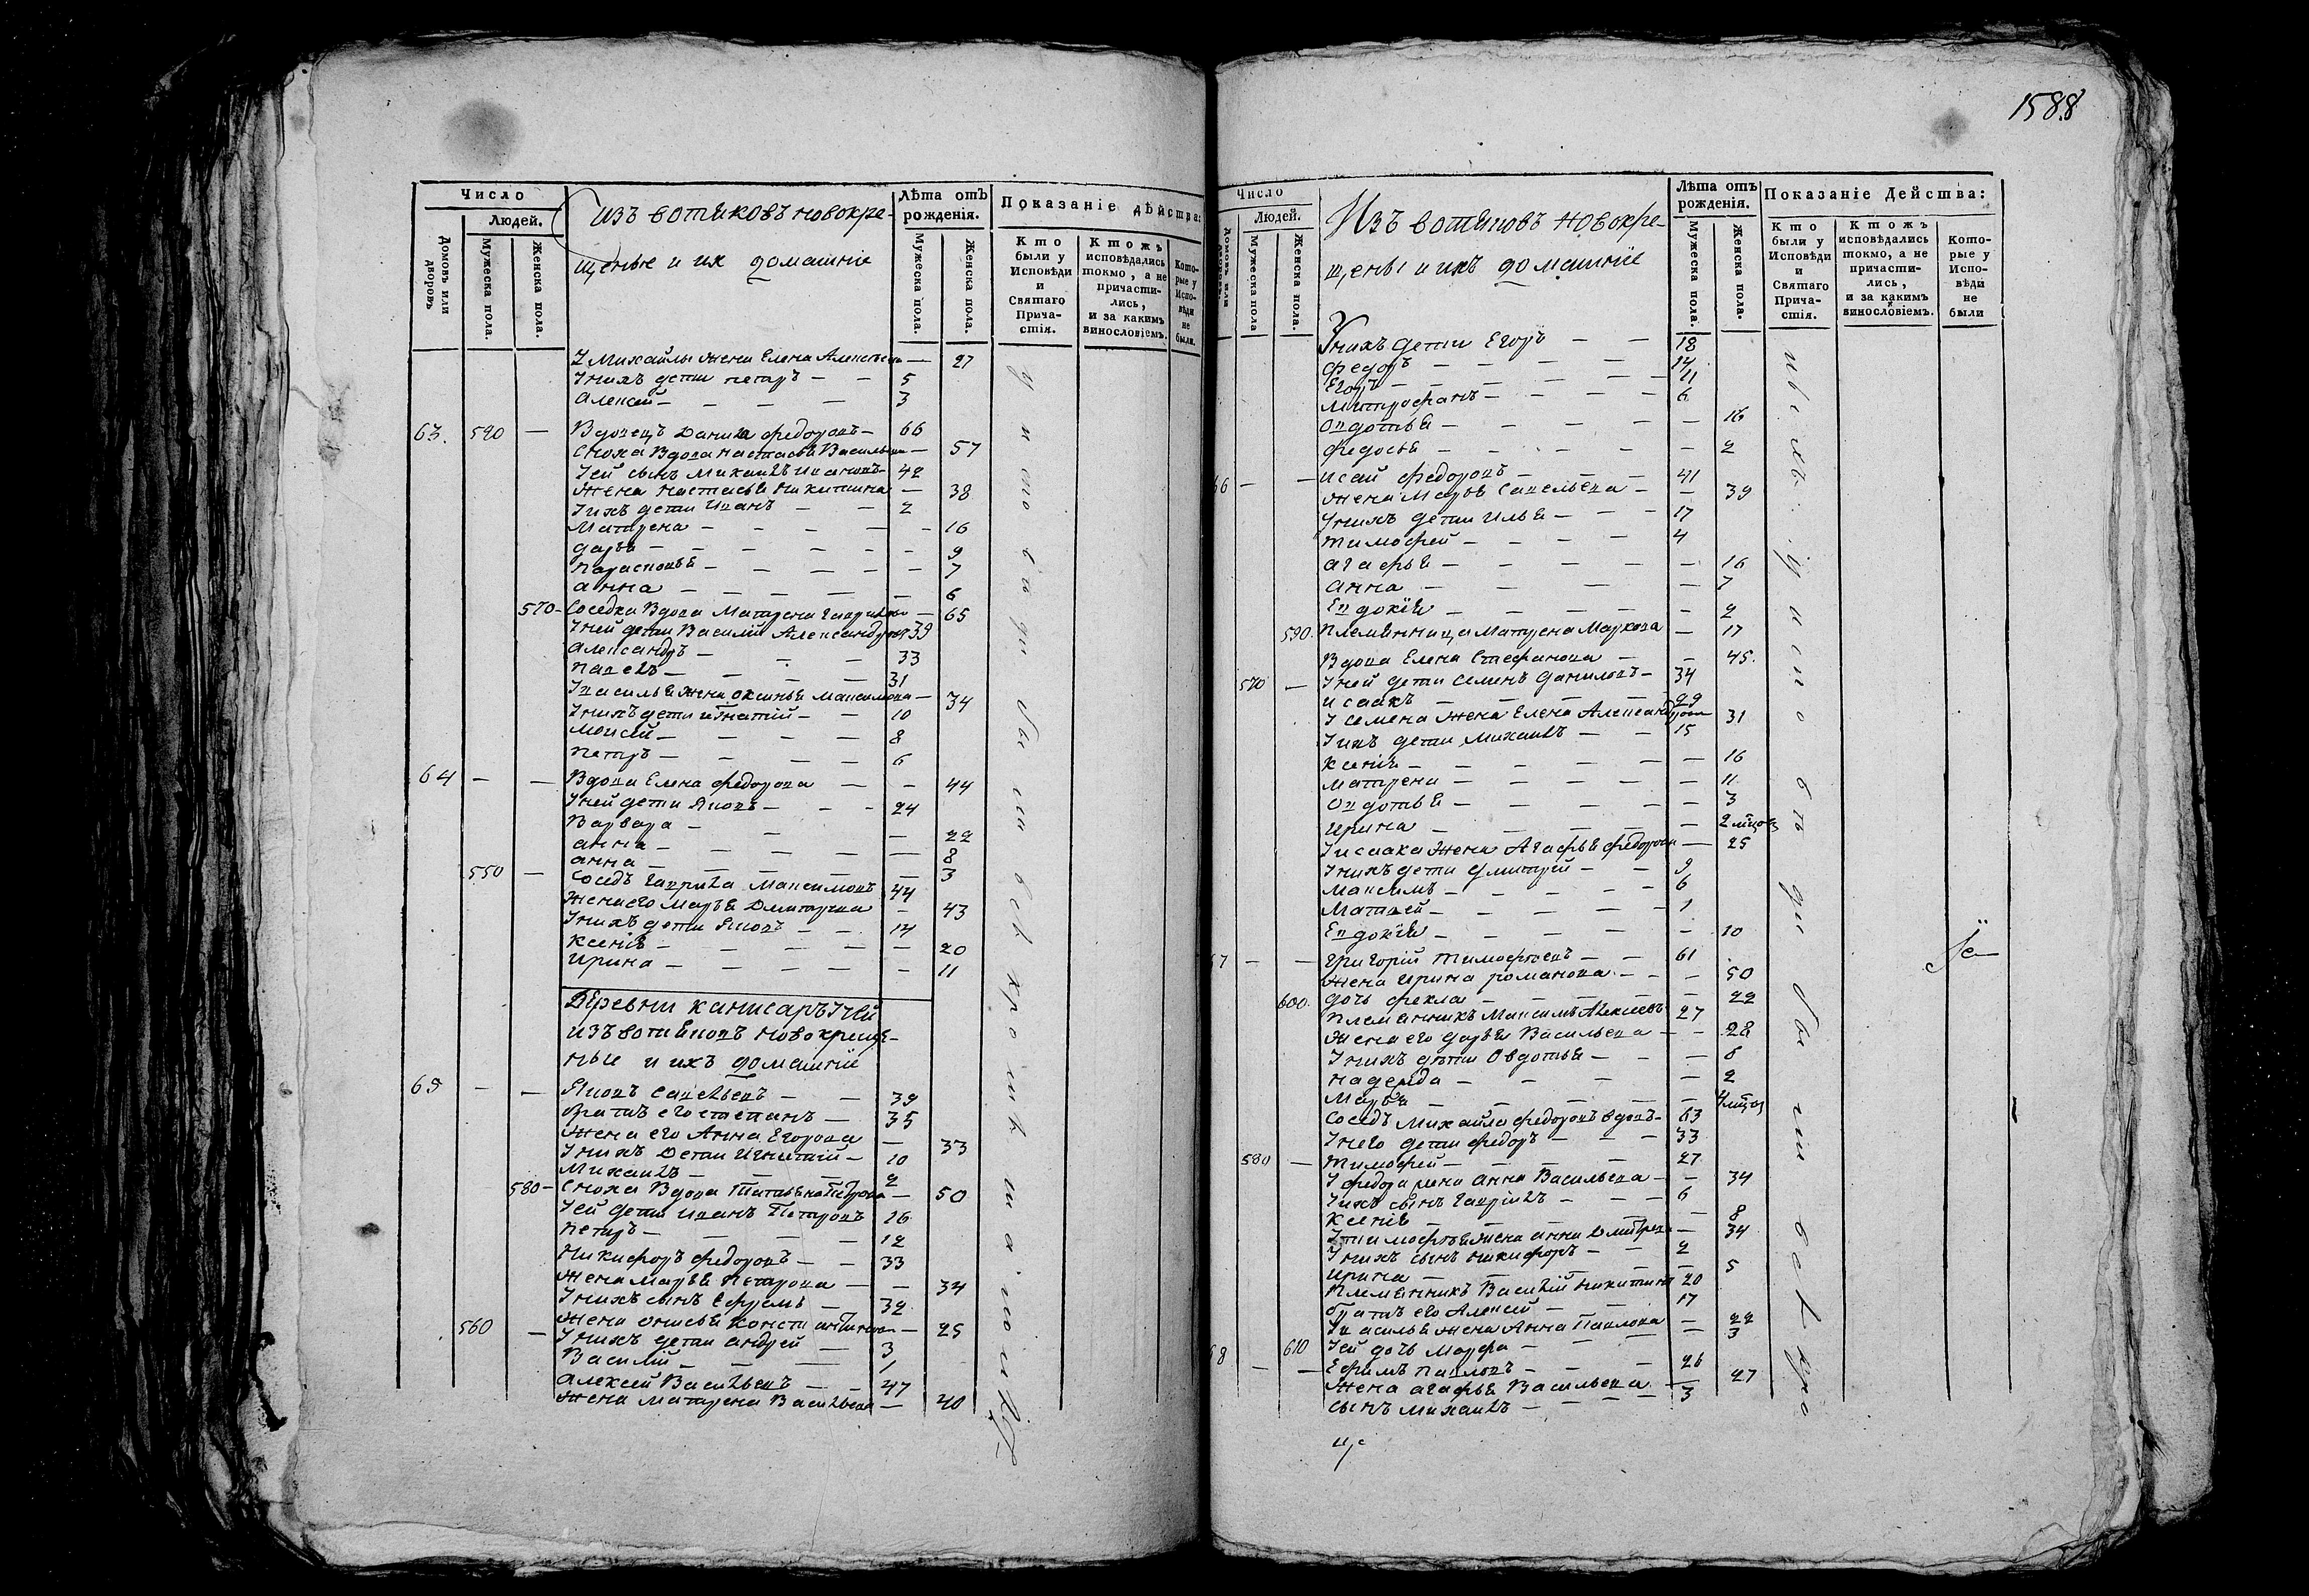 Число
Людей.
Домовъ или дворовъ
Мужеска пола.
Женска пола.
изъ вотяковъ новокре-
щеные и их домашніе
Лѣта отъ рожденія.
Мужеска пола.
Женска пола.
Показаніе дѣйства:
Кто были у Исповѣди и Святаго Прича-стія.
Ктожъ исповѣдались токмо, а не причасти-лись, и за какимъ винословіемъ.
Кото-рые у Испо-вѣди не были.
У Михайлы жена Елена — 27
У нихъ дети петръ — — 5
Алексей — — — — 3
63. 520 — Вдовецъ Данила федоровъ — 66
Сноха Вдова настасья Васильева — 57
У ей сынъ Михаилъ Ивановъ — 42
Жена настасья никитина — 38
У ихъ дети Иванъ — — 2
Матрена — — — — — 16
дарья — — — — — — 9
парасковья — — — — — 7
анна — — — — — 6
570 — Соседка Вдова Матрена гаврилова — 65
У ней дети Василій Александровъ 39
Александръ — — — 33
павелъ — — — — 31
У василья жена оксинья Максимова — 34
У нихъ дети игнатій — — 10
Моисей — — — — 8
петръ — — — — 6
64 — — Вдова Елена федорова — — 44
У ней дети Яковъ — — — 24
Варвара — — — 22
анна — — — — — 8
анна — — — — — 3
550 — Соседъ гаврила Максимовъ 44
Жена его Марья Дмитрева — 43
У нихъ дети Яковъ — — 14
ксенія — — — — — 20
ирина — — — — — 11
Деревни
изъ вотяковъ новокреще-
ные и ихъ домашніе
65 — — Яковъ Савельевъ — — 39
братъ его степанъ — 35
Жена его Анна Егорова — 33
У нихъ Дети Игнатій — 10
Михаилъ — — — 2
580 — Сноха Вдова Татьяна Петрова — 50
У ей дети иванъ Петровъ 16
петръ — — — — 12
Никифоръ федоровъ — — 33
жена марья петрова — — 34
У нихъ сынъ Ефремъ — 32
560 — Жена онисья Константинова — 25
У нихъ дети андрей — 3
Василій — — — 1
Алексей Васильевъ — — 47
Жена матрена Васильева — 40
1588
Число
Людей.
Домовъ или
Мужеска пола
Женска пола.
Изъ вотяковъ новокре-
щены и ихъ домашніе
Лѣта отъ рожденія.
Мужеска пола.
Женска пола.
Показаніе Действа:
Кто были у Исповѣди и Святаго Прича-стія.
Ктожъ исповѣдались токмо, а не причасти-лись, и за какимъ винословіемъ.
Кото-рые у Испо-вѣди не были
У нихъ дети Егоръ — — 18
федоръ — — — — 14
Егоръ — — — — — 11
митрофанъ — — — — 6
овдотья — — — — — 16
федосья — — — — — 2
66 — — исай федоровъ — — — 41
жена Марья Савельева — — 39
У нихъ дети илья — — — 17
тимофей — — — — 4
агафья — — — — — 16
анна — — — — 7
Евдокія — — — — — 2
590. племянница матрена Маркова — 17
Вдова Елена Стефанова — — 45.
570 — У ней дети семенъ даниловъ — 34
исаакъ — — — — 29
У семена жена Елена Александрова 31
У ихъ дети Михаилъ — — 15
ксенія — — — — — — 16
матрена — — — — — 11
овдотья — — — — — 3
ирина — — — — — 2 мцов
У исаака жена Агафья федорова — 25
У нихъ дети дмитрей — — 9
максимъ — — — — — 6
Матвей — — — — — 1
Евдокія — — — — — 10
67 — — григорій тимофеевъ — — 61
жена ирина романова — — — 50
600. дочь фекла — — — — — 22
племянникъ Максимъ Алексеевъ 27
жена его дарья Васильева — — 28
У нихъ дети Овдотья — — — 6
надежда — — — — 2
Марья — — — — — 4 мцов
Соседъ Михайла федоровъ вдовъ — 63
У него дети федоръ — — — 33
580 — тимофей — — — — 27
У федора жена анна Васильева — — 34
У ихъ сынъ гавріилъ — — — 6
ксенія — — — — — 8
У тимофея жена анна Дмитрева — 34
У нихъ сынъ никифоръ — — 2
ирина — — — — — 5
племянникъ Василій никитинъ 20
братъ его Алексей — — 17
У василья жена Анна Павлова — 22
610 У ей дочь марфа — — — — 3
68 — — Ефимъ павловъ — — — 26
Жена агафья Васильева — 27
сынъ михаилъ — — — — 3